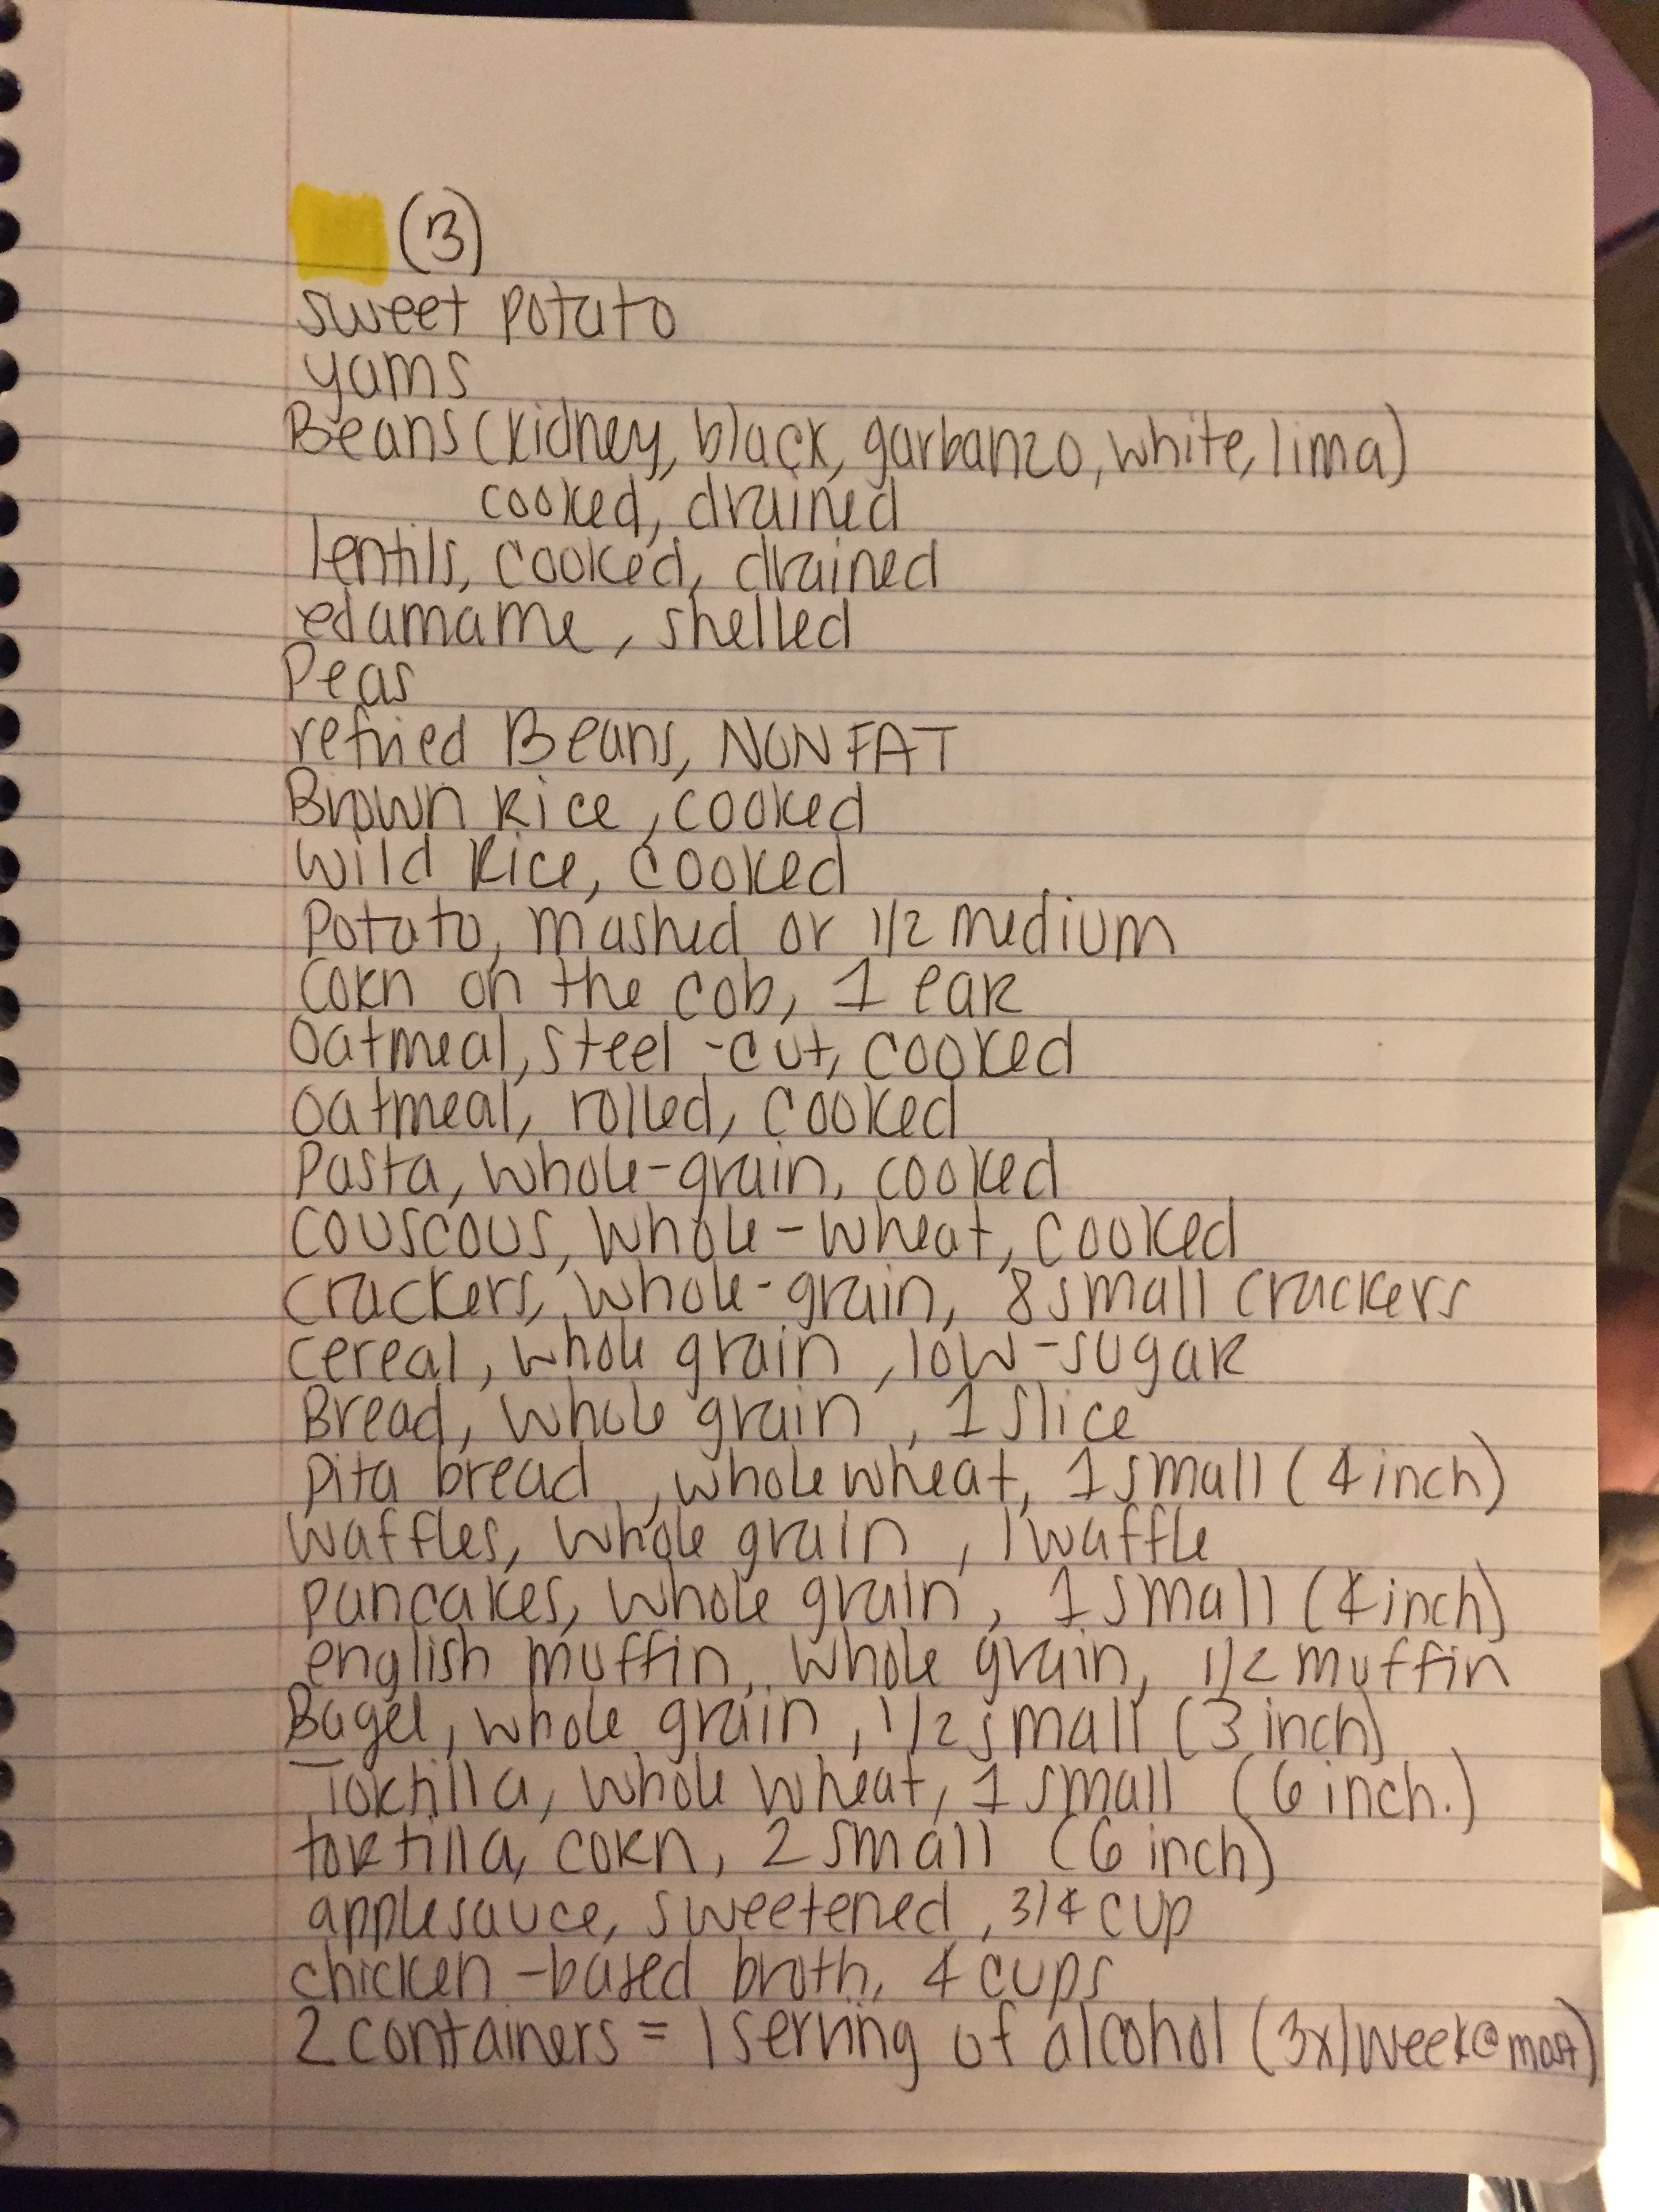 (3)
sweet potato
yams
Beans (kidney, black, garbanzo, white, lima)
cooked, drained
lentils, cooked, drained
edamame, shelled
Peas
refried Beans, NONFAT
Brown Rice, cooked
Wild Rice, cooked
Potato, mashed or 1/2 medium
Corn on the cob, 1 ear
Oatmeal, steel-cut, cooked
Oatmeal, rolled, cooked
Pasta, whole-grain, cooked
couscous, whole-wheat, cooked
crackers, whole-grain, 8 small crackers
cereal, whole grain, low-sugar
Bread, whole grain, 1 slice
Pita bread, whole wheat, 1 small (4 inch)
waffles, whole grain, 1 waffle
pancakes, whole grain, 1 small (4 inch)
english muffin, whole grain, 1/2 muffin
Bagel, whole grain, 1/2 small (3 inch)
Tortilla, whole wheat, 1 small (6 inch.)
tortilla, corn, 2 small (6 inch)
applesauce, sweetened, 3/4 cup
chicken-based broth, 4 cups
2 containers = 1 serving of alcohol (3x/week@most)